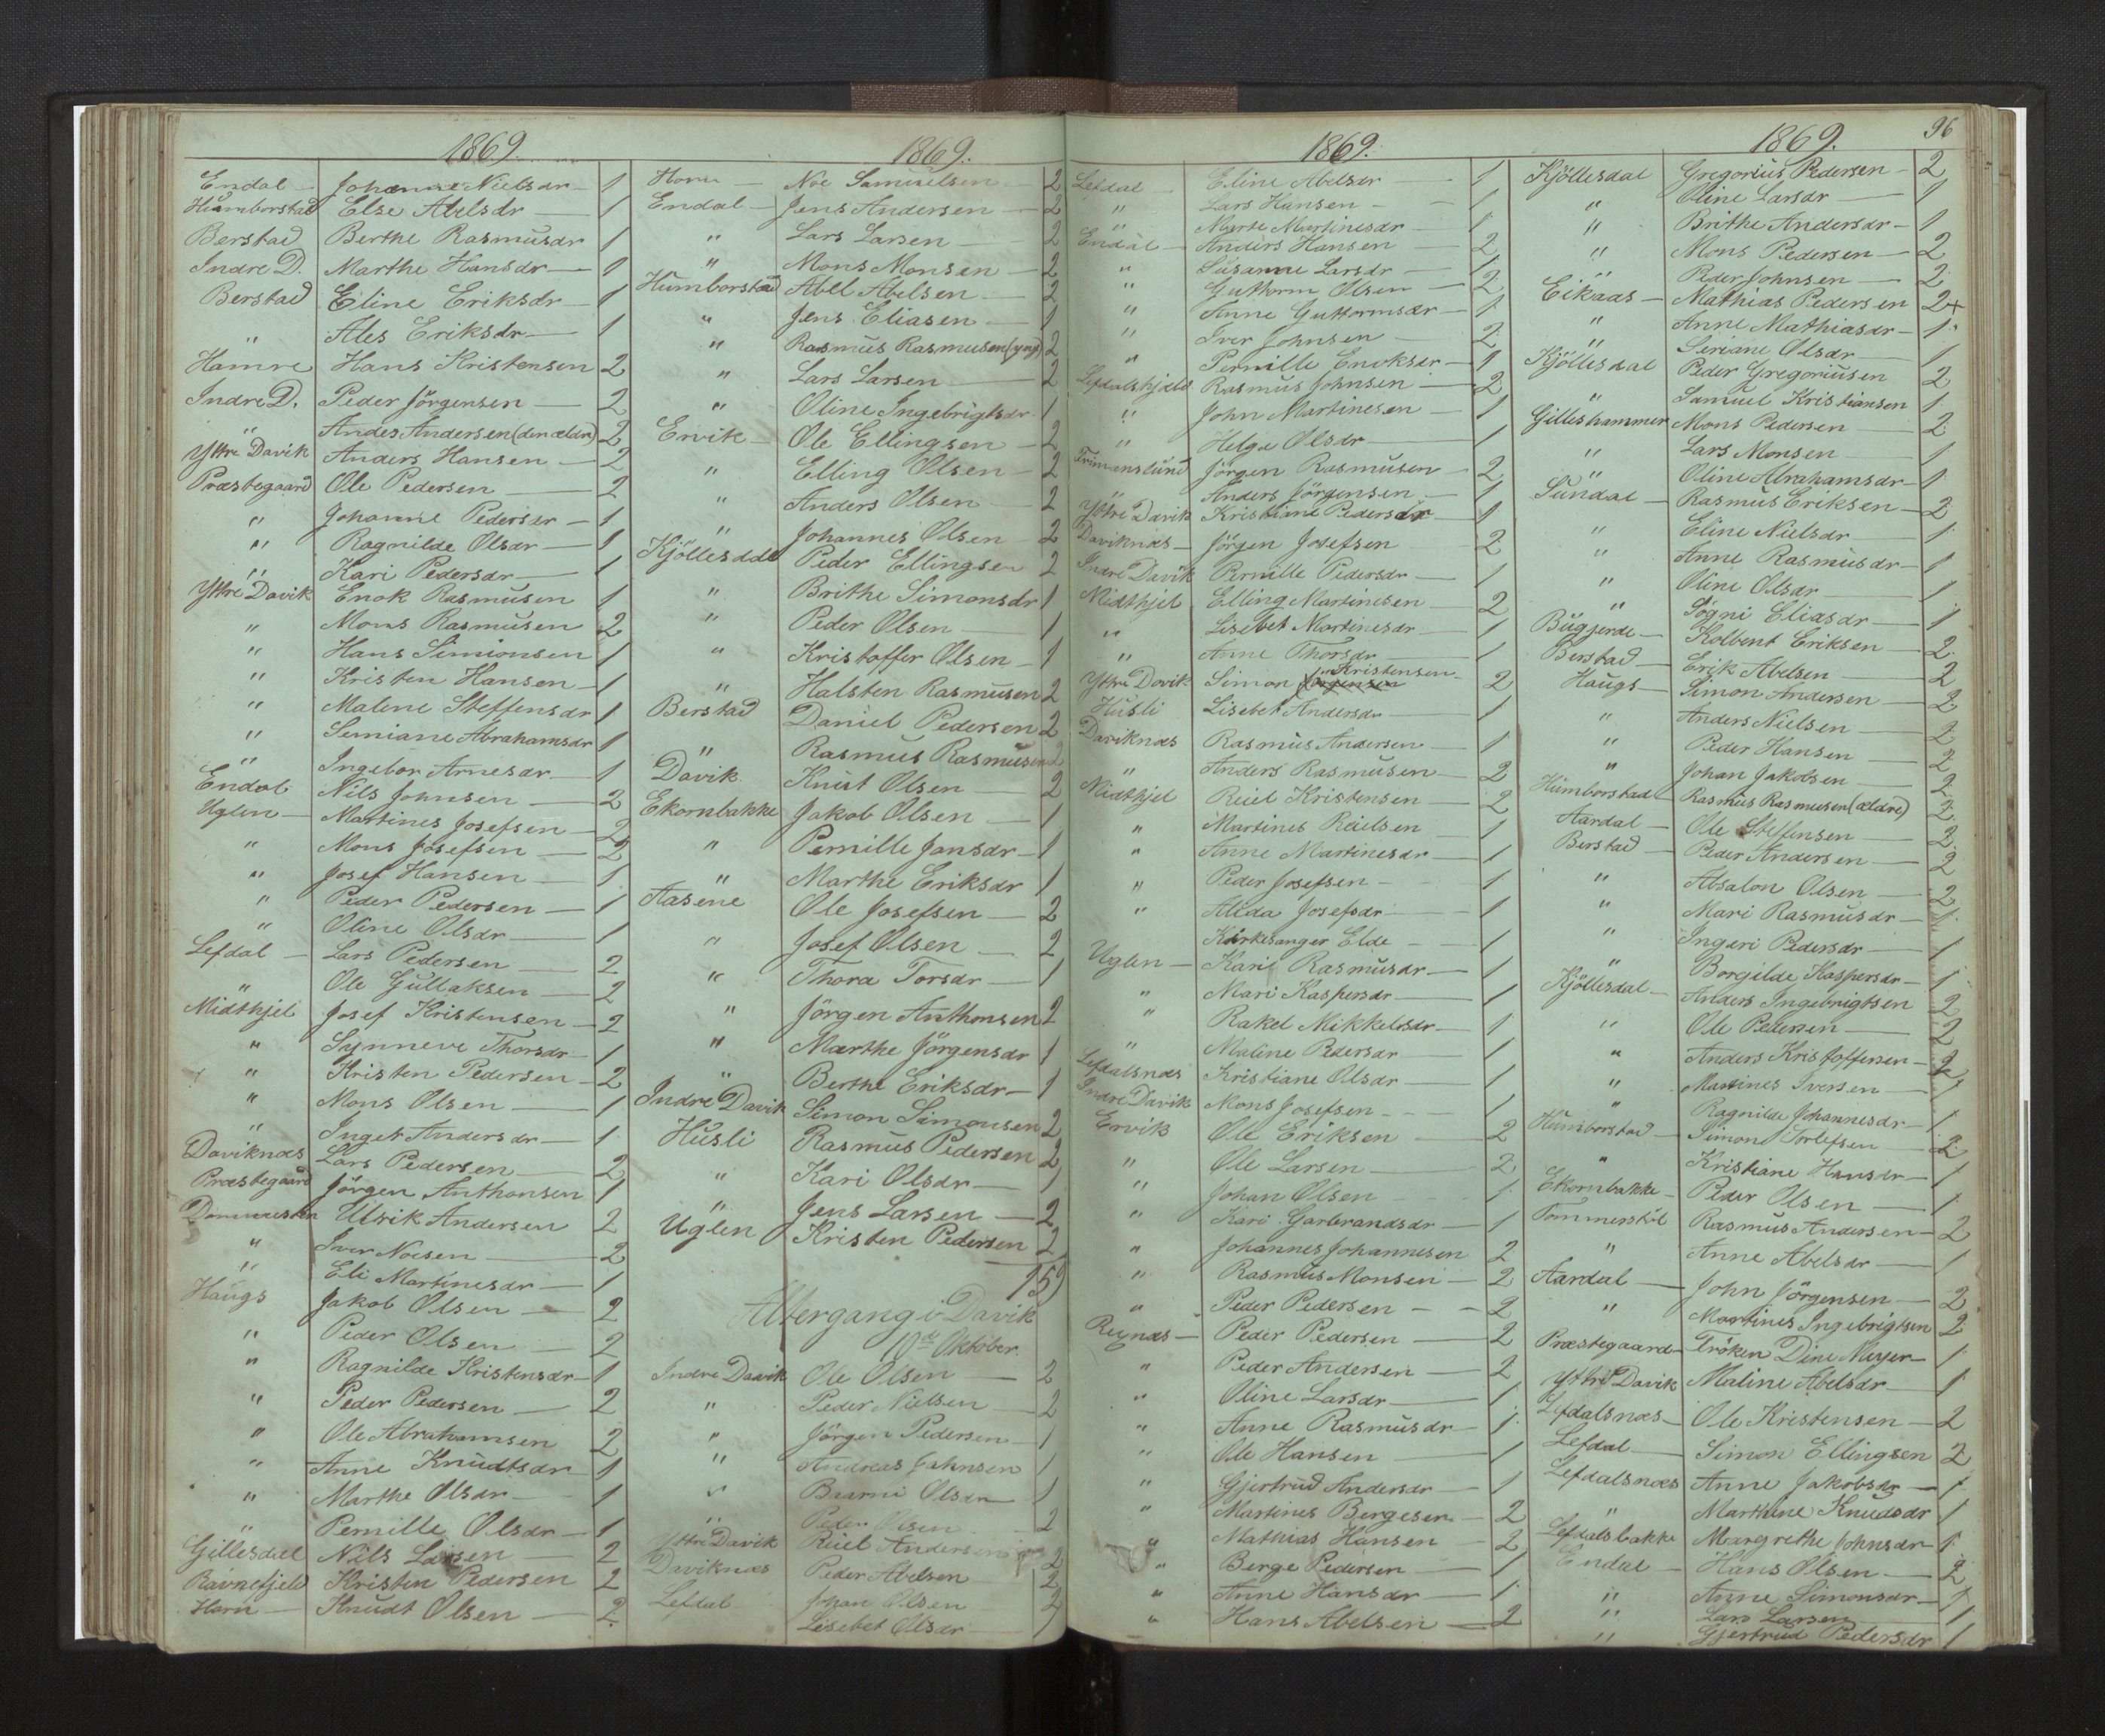 1869.
Endal — Johanne Nielsdr — 1
Humborstad Else Abelsdr — 1
Berstad Berthe Rasmusdr 1
Indre D. Marthe Hansdr — 1
Berstad Eline Eriksdr — 1
" Ales Eriksdr — 1
Hamre Hans Kristensen 2
Indre D. Peder Jörgensen — 2
" Andes Andersen (den ældre) 2
Yttre Davik Anders Hansen — 2
Præstegaard Ole Pedersen — 2
" Johanne Pedersdr — 1
" Ragnilde Olsdr — 1
" Kari Pedersdr — 1
Yttre Davik Enok Rasmusen 1
" Mons Rasmusen 2
" Hans Simonsen 1
" Kristen Hansen — 1
" Malene Steffensdr 1
" Semiane Abrahamsdr 1
" Ingebor Arnesdr — 1
Endal Nils Johnsen — 2
Uglen — Martines Josefsen — 2
" Mons Josefsen — 2
" Josef Hansen — 1
" Peder Pedersen — 1
" Oline Olsdr — 1
Lefdal — Lars Pedersen — 2
" Ole Gullaksen — 2
Midthjel Josef Kristensen — 2
" Synneve Thorsdr — 1
" Kristen Pedersen — 2
" Mons Olsen — 1
" Inget Andersdr — 1
Daviknæs Lars Pedersen — 2
Præstegaard Jörgen Anthonsen 1
Ulrik Andersen 2
" Iver Noesen — 2
" Eli Martinesdr — 1
Haugs Jakob Olsen — 2
" Peder Olsen — 2
" Ragnilde Kristensdr — 1
" Peder Pedersen — 2
" Ole Abrahamsen 2
" Anne Knudtsdr 1
" Marthe Olsdr — 1
" Pernille Olsdr — 1
Gillesdal Nils Larsen — 2
Ravnefjeld Kristen Pedersen 2
Horn — Knudt Olsen — 2
1869.
Horn — Noe Samuelsen 2
Endal — Jens Andersen — 2
" Lars Larsen — 2
" Mons Monsen — 2
Humborstad Abel Abelsen — 2
" Jens Eliasen — 1
" Rasmus Rasmusen (yng) 2
" Lars Larsen — 2
" Oline Ingebrigtsdr 1
Ervik Ole Ellingsen — 2
" Elling Olsen — 2
" Anders Olsen — 2
" Johannes Olsen 2
Kjöllesdal Peder Ellingsen 2
" Brithe Simonsdr 1
" Peder Olsen — 1
" Kristoffer Olsen — 1
" Halsten Rasmusen 2
Berstad Daniel Pedersen 2
" Rasmus Rasmusen 2
Davik Knut Olsen — 2
Ekornbakke Jakob Olsen — 1
" Pernille Jonsdr — 1
" Marthe Eriksdr 1
Aasene Ole Josefsen — 2
" Josef Olsen — 2
" Thora Torsdr — 1
" Jörgen Anthonsen 2
" Marthe Jörgensdr 1
" Berthe Eriksdr — 1
Indre Davik Simon Simonsen 2
Husli Rasmus Pedersen 2
" Kari Olsdr — 1
" Jens Larsen — 2
Uglen Kristen Pedersen 2
159
Altergang i Davik
10de Oktober.
Indre Davik Ole Olsen — 2
" Peder Nielsen — 2
" Jörgen Pedersen — 1
" Andreas Johnsen 1
" Olsdr 1
" Peder Olsen — 2
Yttre Davik Reiel Andersen 2
Daviknæs Peder Abelsen 2
Lefdal Johan Olsen 2
Lisebet Olsdr — 1
1869.
Lefdal — Eline Abelsdr — 1
" Lars Hansen — 1
" Marte Martinesdr — 1
Endal — Anders Hansen — 2
" Susanne Larsdr — 1
" Guttorm Olsen — 2
" Anne Guttormsdr — 1
" Iver Johnsen — 2
" Pernille Enoksdr — 1
Lefdalshjelle Rasmus Johnsen — 2
" John Martinesen — 1
" Helga Olsdr — 1
Jörgen Rasmusen — 2
" Anders Jörgensen — 1
Yttre Davik Kristiane Pedersdr — 1
Daviknæs — Jörgen Josefsen 2
Indre Davik Pernille Pedersdr — 1
Midthjel Elling Martinesen — 2
" Lisebet Martinesdr — 1
" Anne Thorsdr — 1
Yttre Davik Simon Kristensen 2
Husli Lisebet Andersdr — 1
Daviknæs Rasmus Andersen — 1
" Anders Rasmusen — 2
Midthjel Reiel Kristensen — 2
" Martines Reielsen — 1
" Anne Martinesdr — 1
" Peder Josefsen — 1
" Alida Josefsdr — 1
Kirkesanger Elde — 1
Uglen — Kari Rasmusdr — 1
" Mari Kaspersdr — 1
" Rakel Mikkelsdr — 1
" Maline Pedersdr — 1
Lefdalsnæs Kristiane Olsdr — 1
Indre Davik Mons Josefsen — 1
Ervik Ole Eriksen — 2
" Ole Larsen — 2
" Johan Olsen — 1
" Kari Garbrandsdr — 1
" Johannes Johannesen 2
" Rasmus Monsen — 2
" Peder Pedersen — 2
Rugnæs — Peder Pedersen — 2
" Peder Andersen — 2
" Oline Larsdr — 1
" Anne Rasmusdr — 1
" Ole Hansen — 1
" Gjertrud Andersdr — 1
" Martines Bergesen — 2
" Mathias Hansen — 2
" Berge Pedersen — 1
" Anne Hansdr — 1
" Hans Abelsen — 2
1869. 96
Kjöllesdal Gregorius Pedersen — 2
" Oline Larsdr — 1
" Brithe Andersdr — 1
" Mons Pedersen — 2
" Peder Johnsen — 2
Eikaas — Mathias Pedersen 2+
" Anne Mathiasdr — 1
" Seriane Olsdr — 1
Kjöllesdal Peder Gregoriusen 2
" Samuel Kristiansen 1
Gilleshammer Mons Pedersen — 2
" Lars Monsen — 1
" Oline Abrahamsdr — 1
Sundal — Rasmus Eriksen — 2
" Eline Nielsdr — 1
" Anne Rasmusdr — 1
" Oline Olsdr — 1
" Sögni Eliasdr — 1
Bugjerde — Kolbent Eriksen — 2
Berstad — Erik Abelsen — 2
Haugs — Simon Andersen — 2
" Anders Nielsen — 2
" Peder Hansen — 2
" Johan Jakobsen — 2
Humborstad Rasmus Rasmusen (ældre) 2
Aardal — Ole Steffensen — 2
Berstad — Peder Andersen — 2
" Absalon Olsen — 2
" Mari Rasmusdr — 1
" Ingeri Pedersdr — 1
" Borgilde Kaspersdr — 1
Kjöllesdal — Anders Ingebrigtsen 2
" Ole Pedersen — 2
" Anders Kristoffersen — 2
" Martines Iversen — 1
" Ragnilde Johannesdr — 1
Humborstad — Simon Torlefsen 2
" Kristiane Hansdr — 1
Ekornbakke — Peder Olsen — 1
Tommerstöl Rasmus Andersen — 2
" Anne Abelsdr — 1
Aardal — John Jörgensen — 2
" Martines Ingebrigtsen 2
Præstegaard Fröken Dine Meyer — 1
Yttre Davik Maline Abelsdr — 1
Lefdalsnæs — Ole Kristensen — 2
Lefdal — Simon Ellingsen 2
Lefdalsnæs Anne Jakobsdr — 1
" Marthine Knudsdr 1
Lefdalsbakke Margrethe Johnsdr — 1
Endal — Hans Olsen — 2
" Anne Simonsdr — 1
" Lars Larsen — 1
" Gjertrud Pedersdr 1